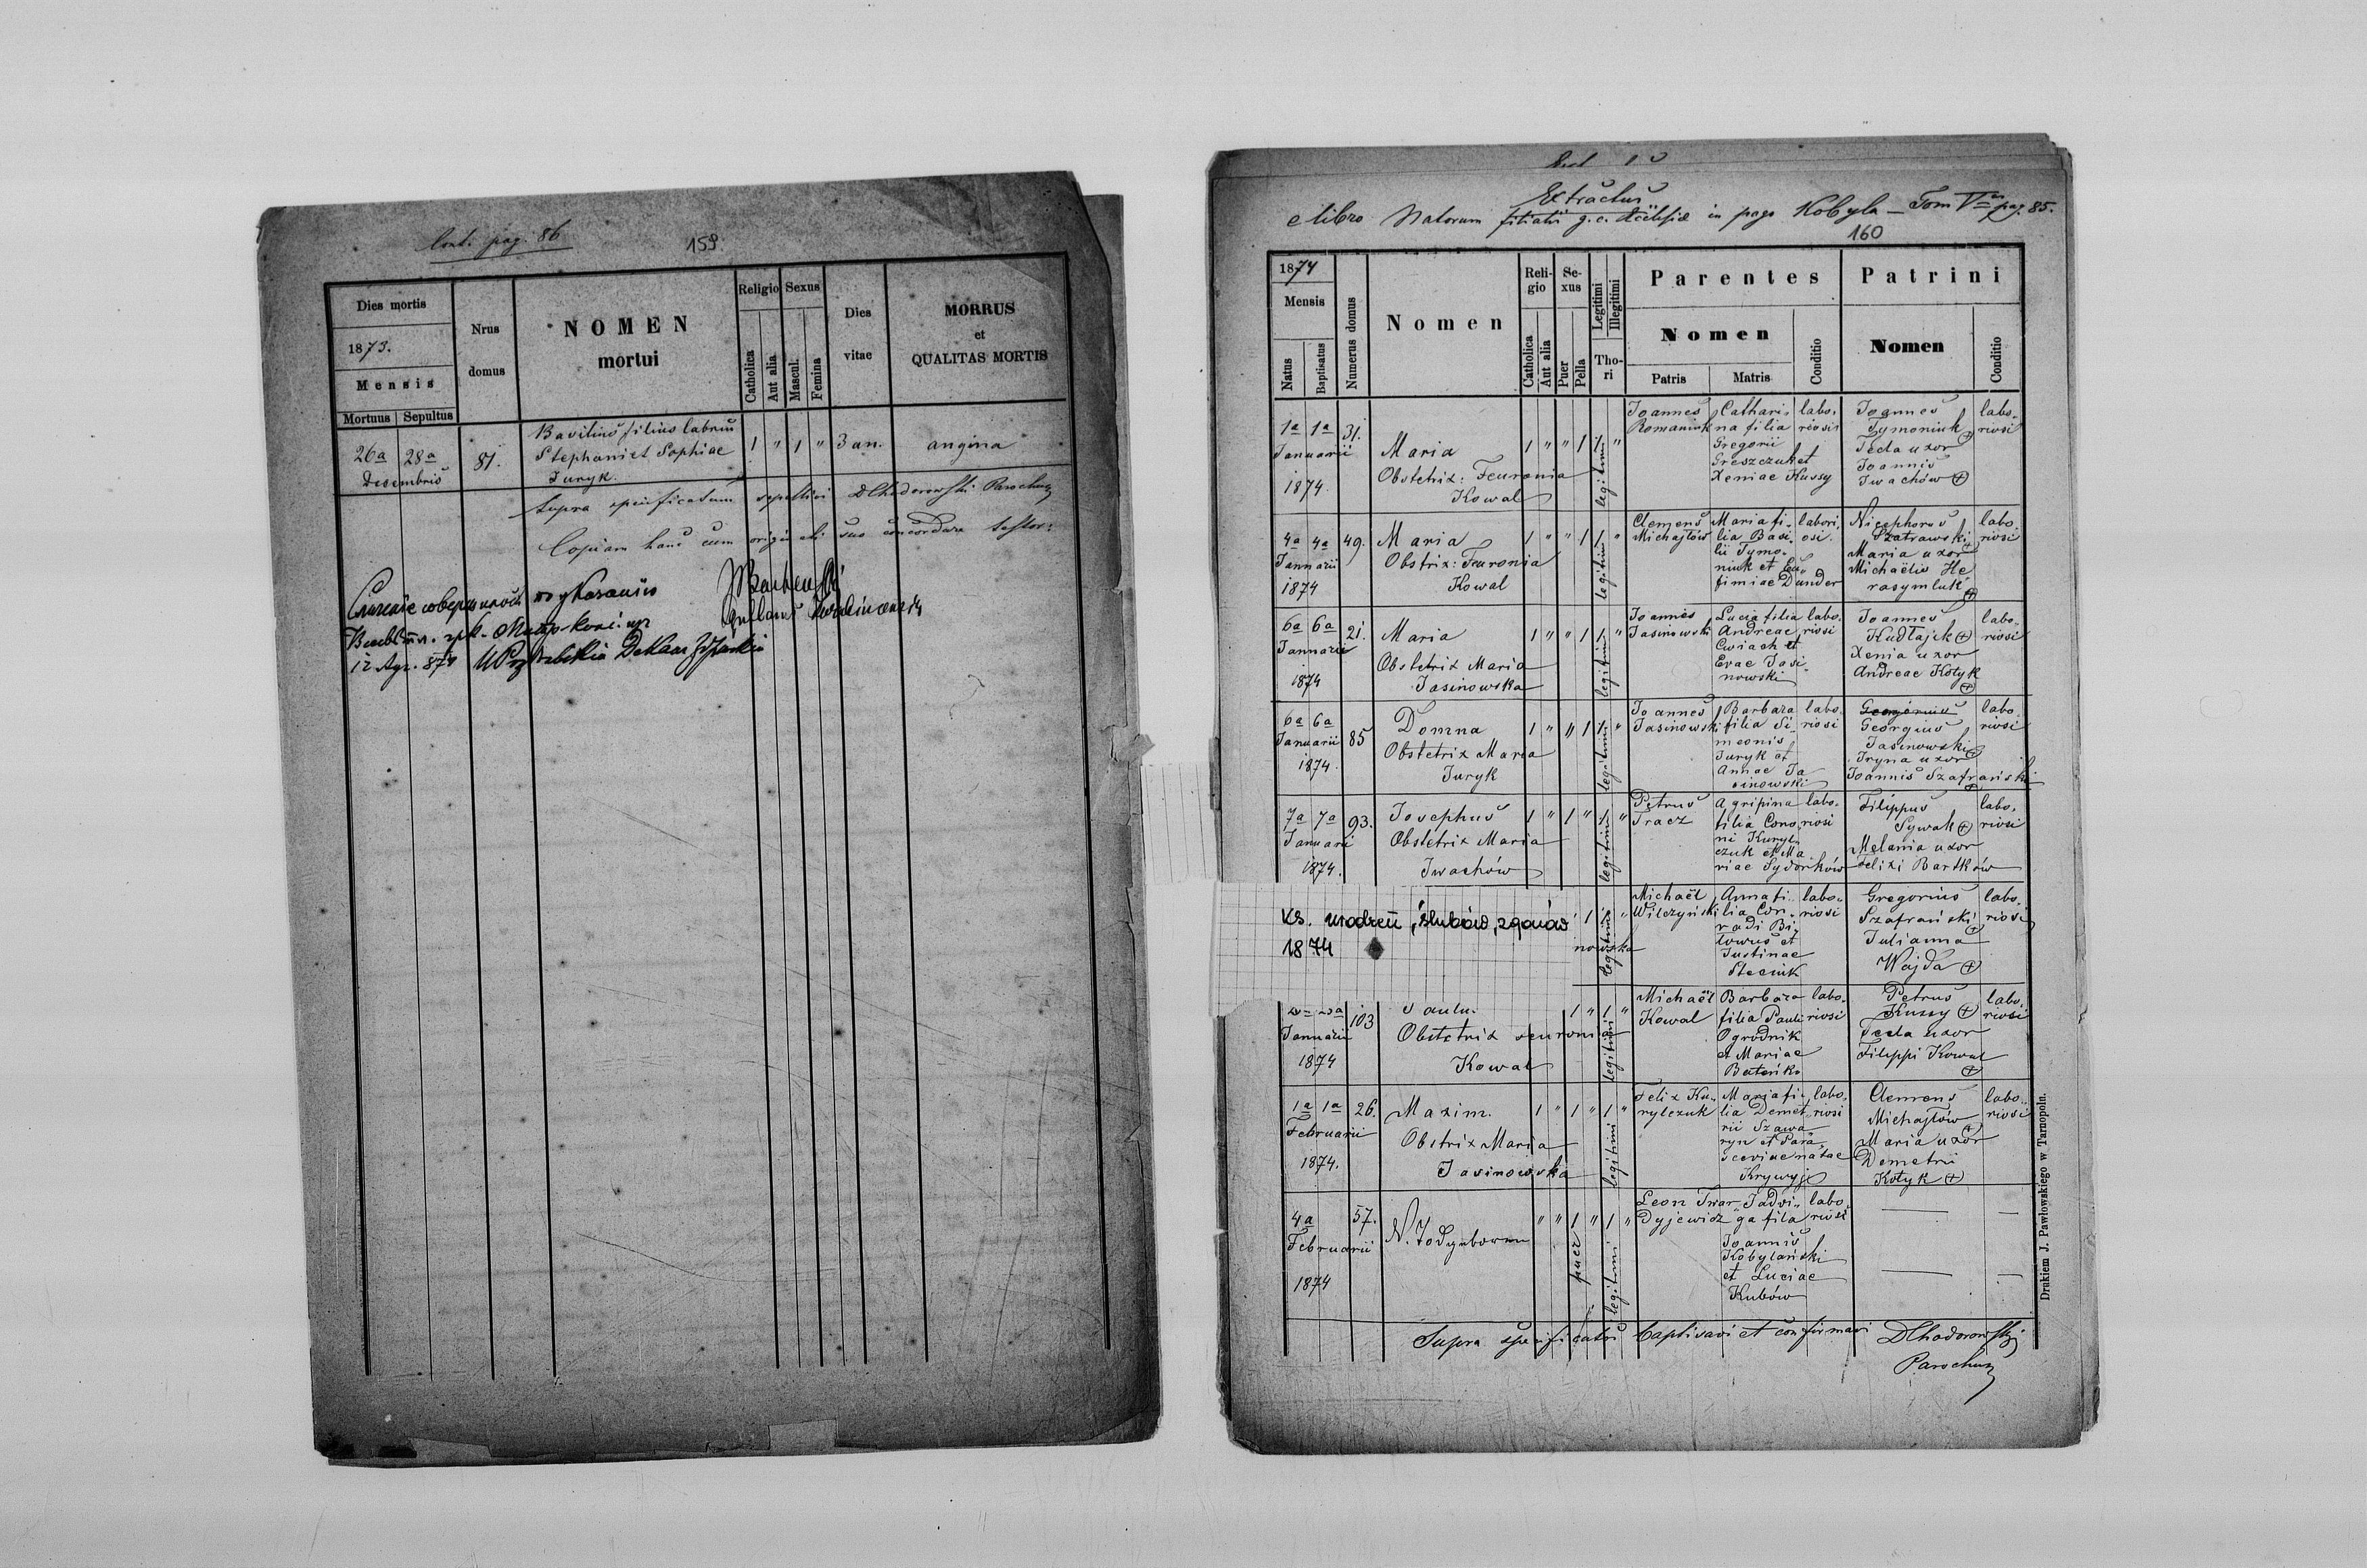 Cont. pag. 86
159.
Dies mortis
1873.
Mensis
Mortuus Sepultus
Nrus
domus
NOMEN
mortui
Religio Sexus
Catholica
Aut alia
Mascul.
Femina
Dies
vitae
MORRUS
et
QUALITAS MORTIS
26a 28a
Decembris
81.
Basilius filius laboriosi
Stephani et Sophiae
Juryk.
1 " 1 "
3 an.
angina
Supra specificatum sepelivi DChodorowski Parochus
Copiam hanc cum originali suo concordare testor:
12 874
Extractus
e libro Natorum filialis g.c. Ecclesiae in pago Kobyla – Tom V pag. 85.
160
1874
Mensis
Natus
Baptisatus
Numerus domus
Nomen
Reli-
gio
Catholica
Aut alia
Se-
xus
Puer
Pella
Legitimi
Illegitimi
Tho-
ri
Parentes
Nomen
Patris
Matris
Conditio
Patrini
Nomen
Conditio
1a 1a
Januarii
1874.
31.
Maria
Obstetrix: Feuronia
Kowal
1 " " 1 1 "
legitimi
Joannes
Romaniuk
Cathari-
na filia
Gregorii
Greszczuk et
Xeniae Kussy
labo-
riosi
Joannes
Tymoniuk
Tecla uxor
Joannis
Iwachów
labo-
riosi
4a 4a
Januarii
1874
49.
Maria
Obstrix: Feuronia
Kowal
1 " " 1 1 "
legitimi
Clemens
Michajłów
Maria fi-
lia Basi-
lii Tymo-
niuk et Eu-
fimiae Dunder
labori-
osi.
Nicephorus
Szatrawski
Maria uxor
Michaëlis He
rasymluk
labo-
riosi
6a 6a
Januarii
1874
21.
Maria
Obstetrix Maria
Jasinowska
1 " " 1 1 "
legitimi
Joannes
Jasinowski
Lucia filia
Andreae
Cwiach et
Evae Jasi-
nowski
labo-
riosi
Joannes
Kudłajik
Xenia uxor
Andreae Kotyk
labo-
riosi
6a 6a
Januarii
1874.
85
Domna
Obstetrix Maria
Juryk
1 " " 1 1 "
legitimi
Joannes
Jasinowski
Barbara
filia Si-
meonis
Juryk et
Annae Ja
sinowski
labo-
riosi
Georgius
Jasinowski
Iryna uxor
Joannis Szafrański
labo-
riosi
7a 7a
Januarii
1874.
93.
Josephus
Obstetrix Maria
Iwachów
1 " 1 " 1 "
legitimi
Petrus
Tracz
Agripina
filia Cono-
ni Kuryl-
czuk et Ma
riae Sydorków
labo-
riosi
Filippus
Sywak
Melania uxor
Felixi Bartków
labo-
riosi
Ks. urodzeń, ślubów, zgonów
1874
nowska
1 "
legitimi
Michaël
Wilczyński
Anna fi-
lia Con-
radi Bi-
łowus et
Justinae
Stecuik
labo-
riosi
Gregorius
Szafrański
Julianna
Wajda
labo-
riosi
Januarii
1874
103
Obstetrix Feuronia
Kowal
1 " 1 "
legitimi
Michaël
Kowal
Barbara
filia Pauli
Ogrodnik
et Mariae
labo-
riosi
Petrus
Kussy
Tecla uxor
Filippi Kowal
labo-
riosi
1a 1a
Februarii
1874.
26.
Maxim.
Obstrix Maria
Jasinowska
1 " 1 " 1 "
legitimi
Felix Ku-
rylczuk
Maria fi-
lia Demet-
rii Szawa
ryn et Para-
sceviae natae
Krywyj
labo-
riosi
Clemens
Michajłów
Maria uxor
Demetrii
Kotyk
labo-
riosi
4a
Februarii
1874
57.
" " 1 " 1 "
puer
legitimi
Leon Twar-
dyjewicz
Jadwi-
ga filia
Joannis
Kobylański
et Luciae
Kubów
labo
riosi
Supra specificatos baptisavi et confirmavi DChodorowski
Parochus
Drukiem J. Pawłowskiego w Tarnopolu.